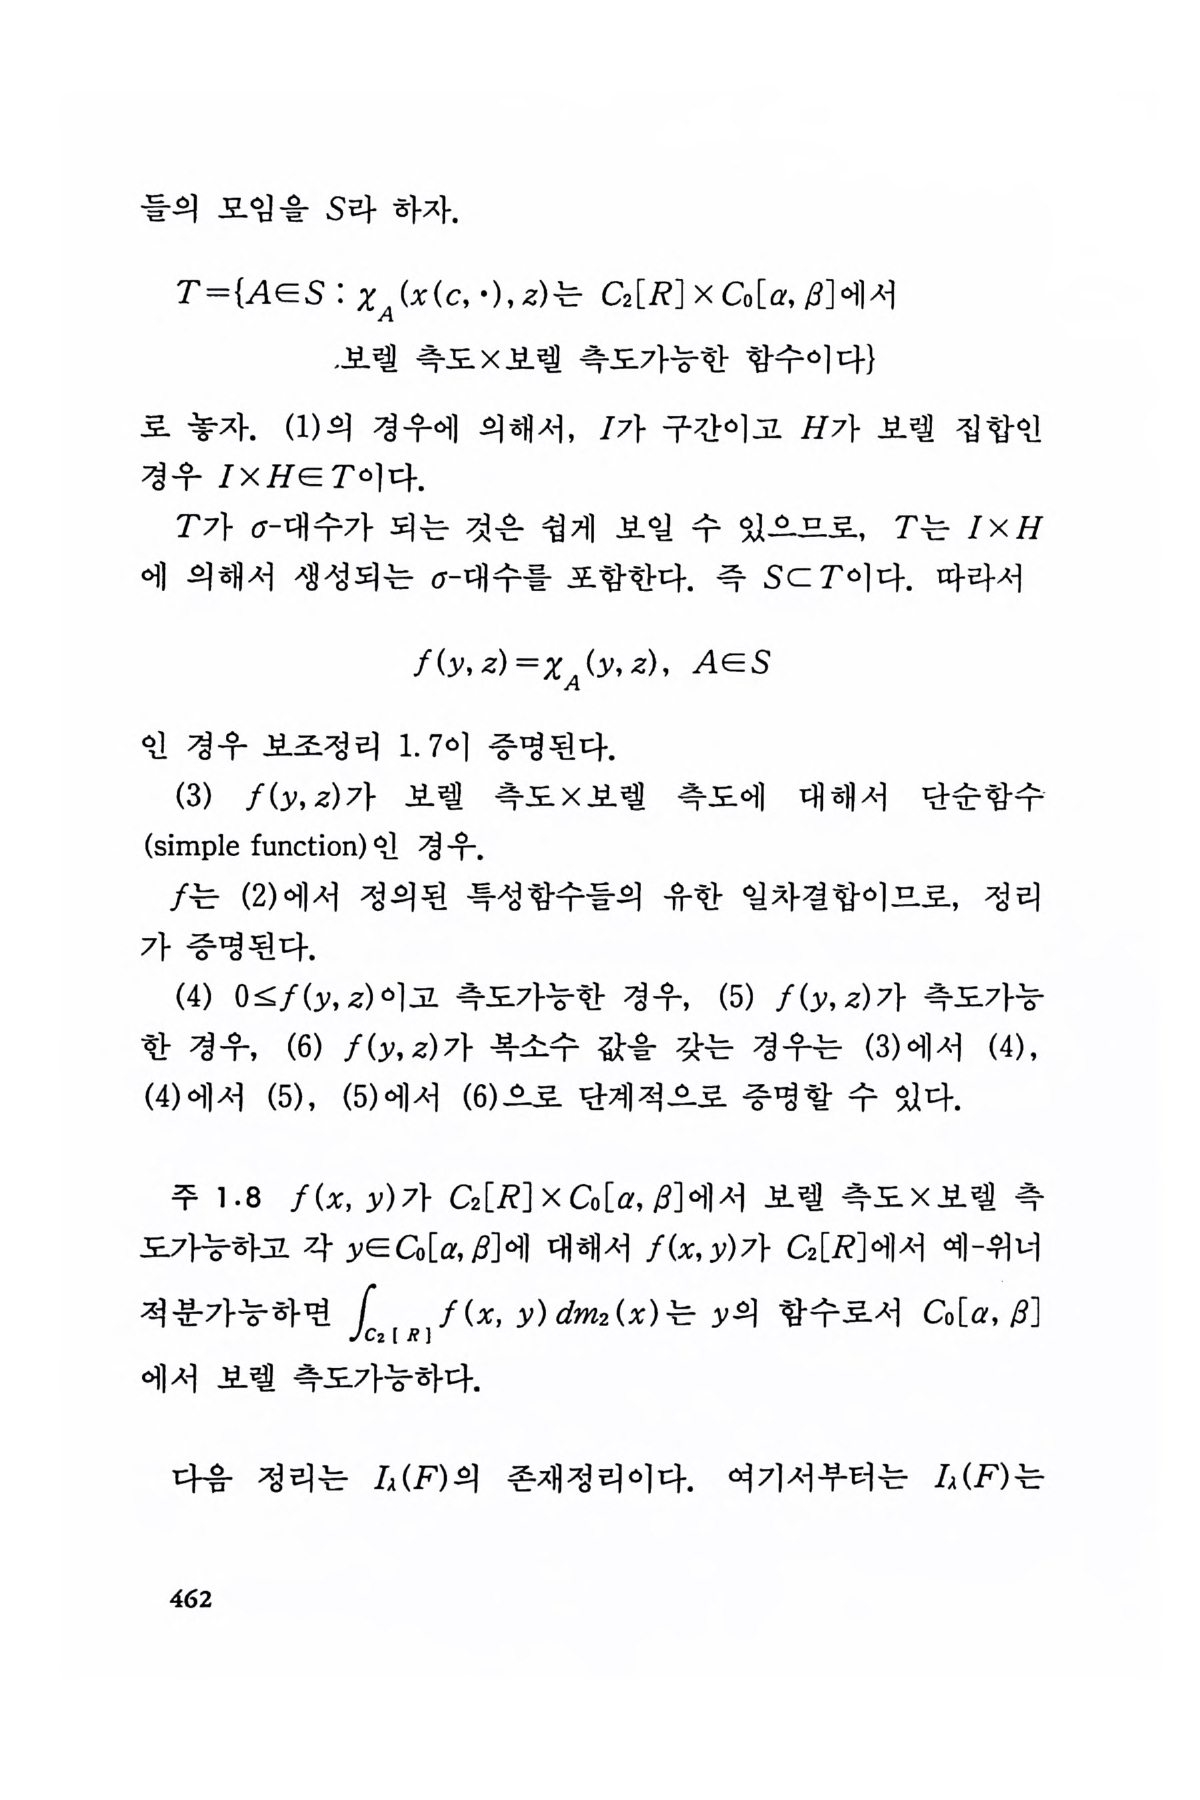 들의 모임을 S라 하자.
T={A∈S : χ_A(x(c, ·), z)는 C₂[R]×C₀[α, β]에서
보렐 측도×보렐 측도가능한 함수이다}
로 놓자. (1)의 경우에 의해서, I가 구간이고 H가 보렐 집합인
경우 I×H∈T이다.
T가 σ-대수가 되는 것은 쉽게 보일 수 있으므로, T는 I×H
에 의해서 생성되는 σ-대수를 포함한다. 즉 S⊂T이다. 따라서
f(y, z)=χ_A(y, z), A∈S
인 경우 보조정리 1.7이 증명된다.
(3) f(y, z)가 보렐 측도×보렐 측도에 대해서 단순함수
(simple function)인 경우.
f는 (2)에서 정의된 특성함수들의 유한 일차결합이므로, 정리
가 증명된다.
(4) 0≤f(y, z)이고 측도가능한 경우, (5) f(y, z)가 측도가능
한 경우, (6) f(y, z)가 복소수 값을 갖는 경우는 (3)에서 (4),
(4)에서 (5), (5)에서 (6)으로 단계적으로 증명할 수 있다.
주 1.8 f(x, y)가 C₂[R]×C₀[α, β]에서 보렐 측도×보렐 측
도가능하고 각 y∈C₀[α, β]에 대해서 f(x, y)가 C₂[R]에서 예-위너
적분가능하면 ∫_{C₂[R]} f(x, y) dm₂(x)는 y의 함수로서 C₀[α, β]
에서 보렐 측도가능하다.
다음 정리는 I_λ(F)의 존재정리이다. 여기서부터는 I_λ(F)는
462